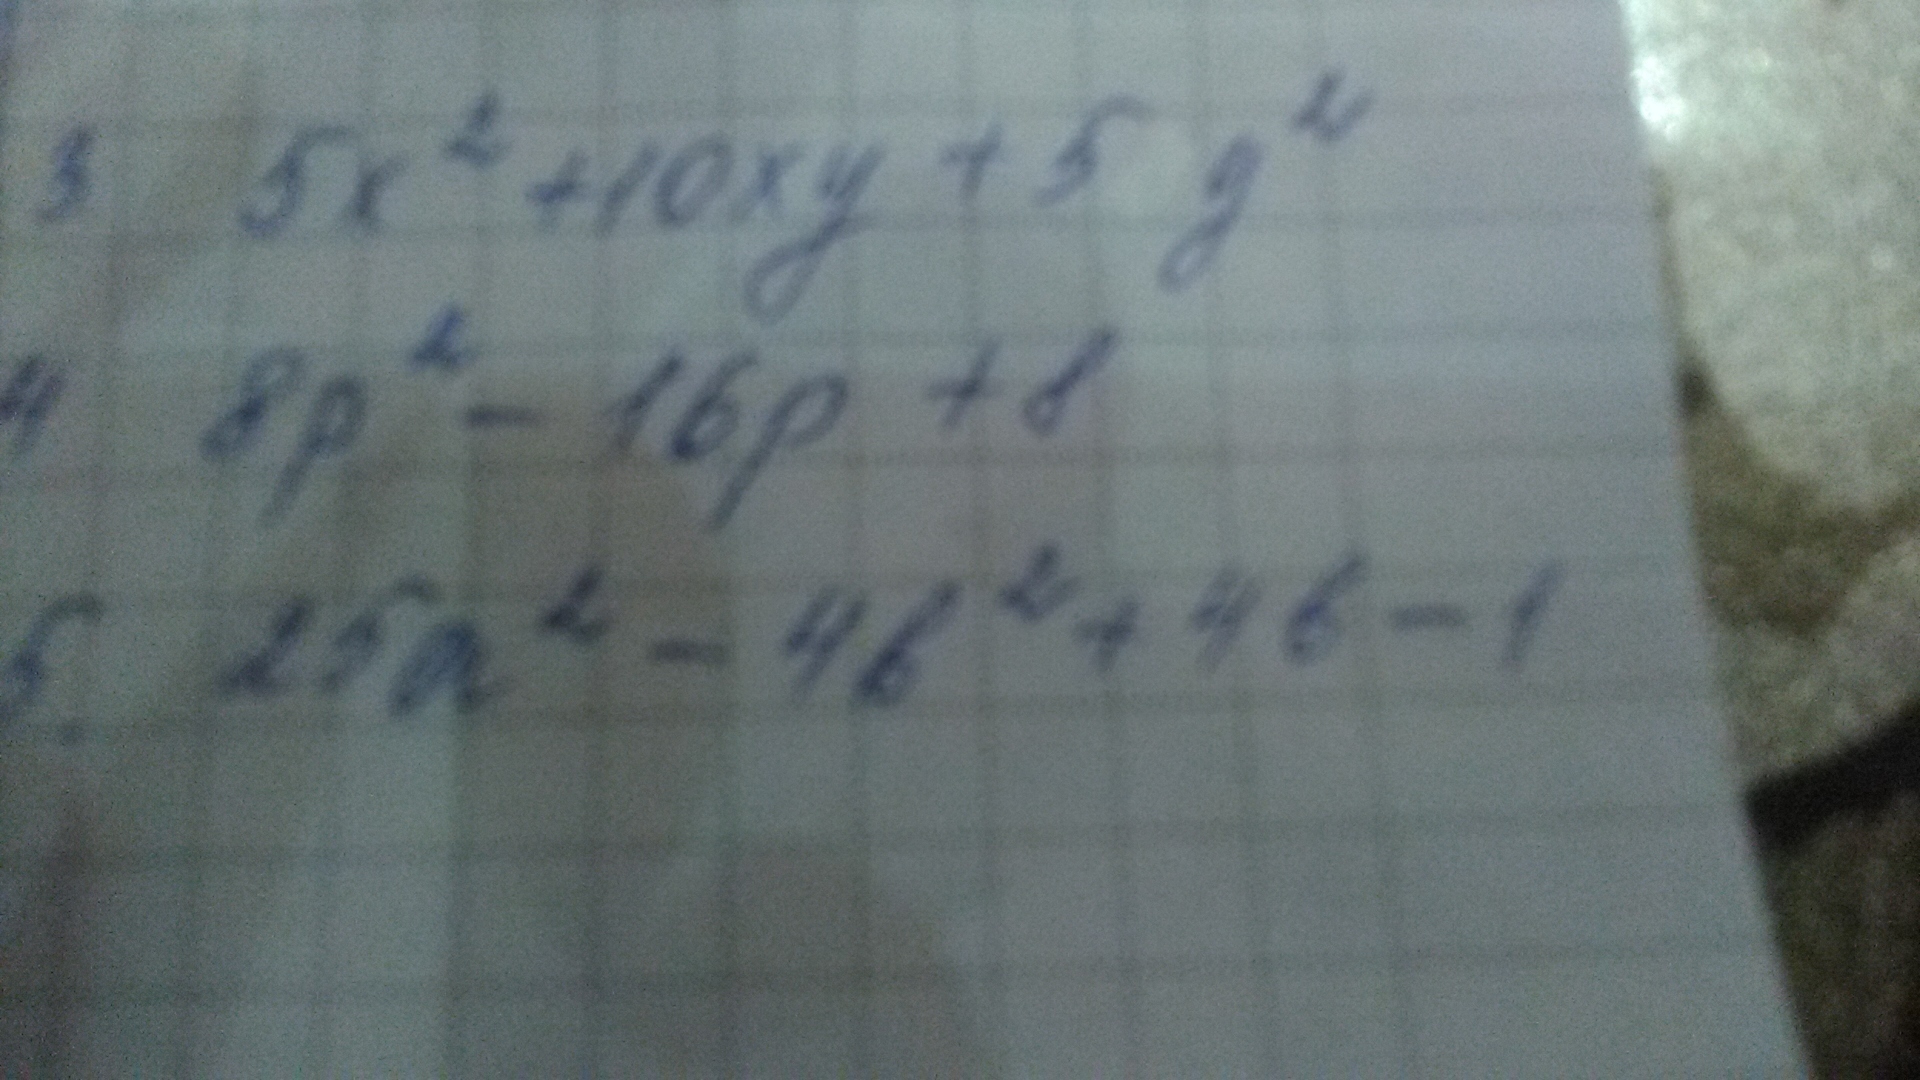 3 5x² + 10xy + 5y²
4 8p² - 16p + 8
5. 25a² - 4b² + 4b - 1